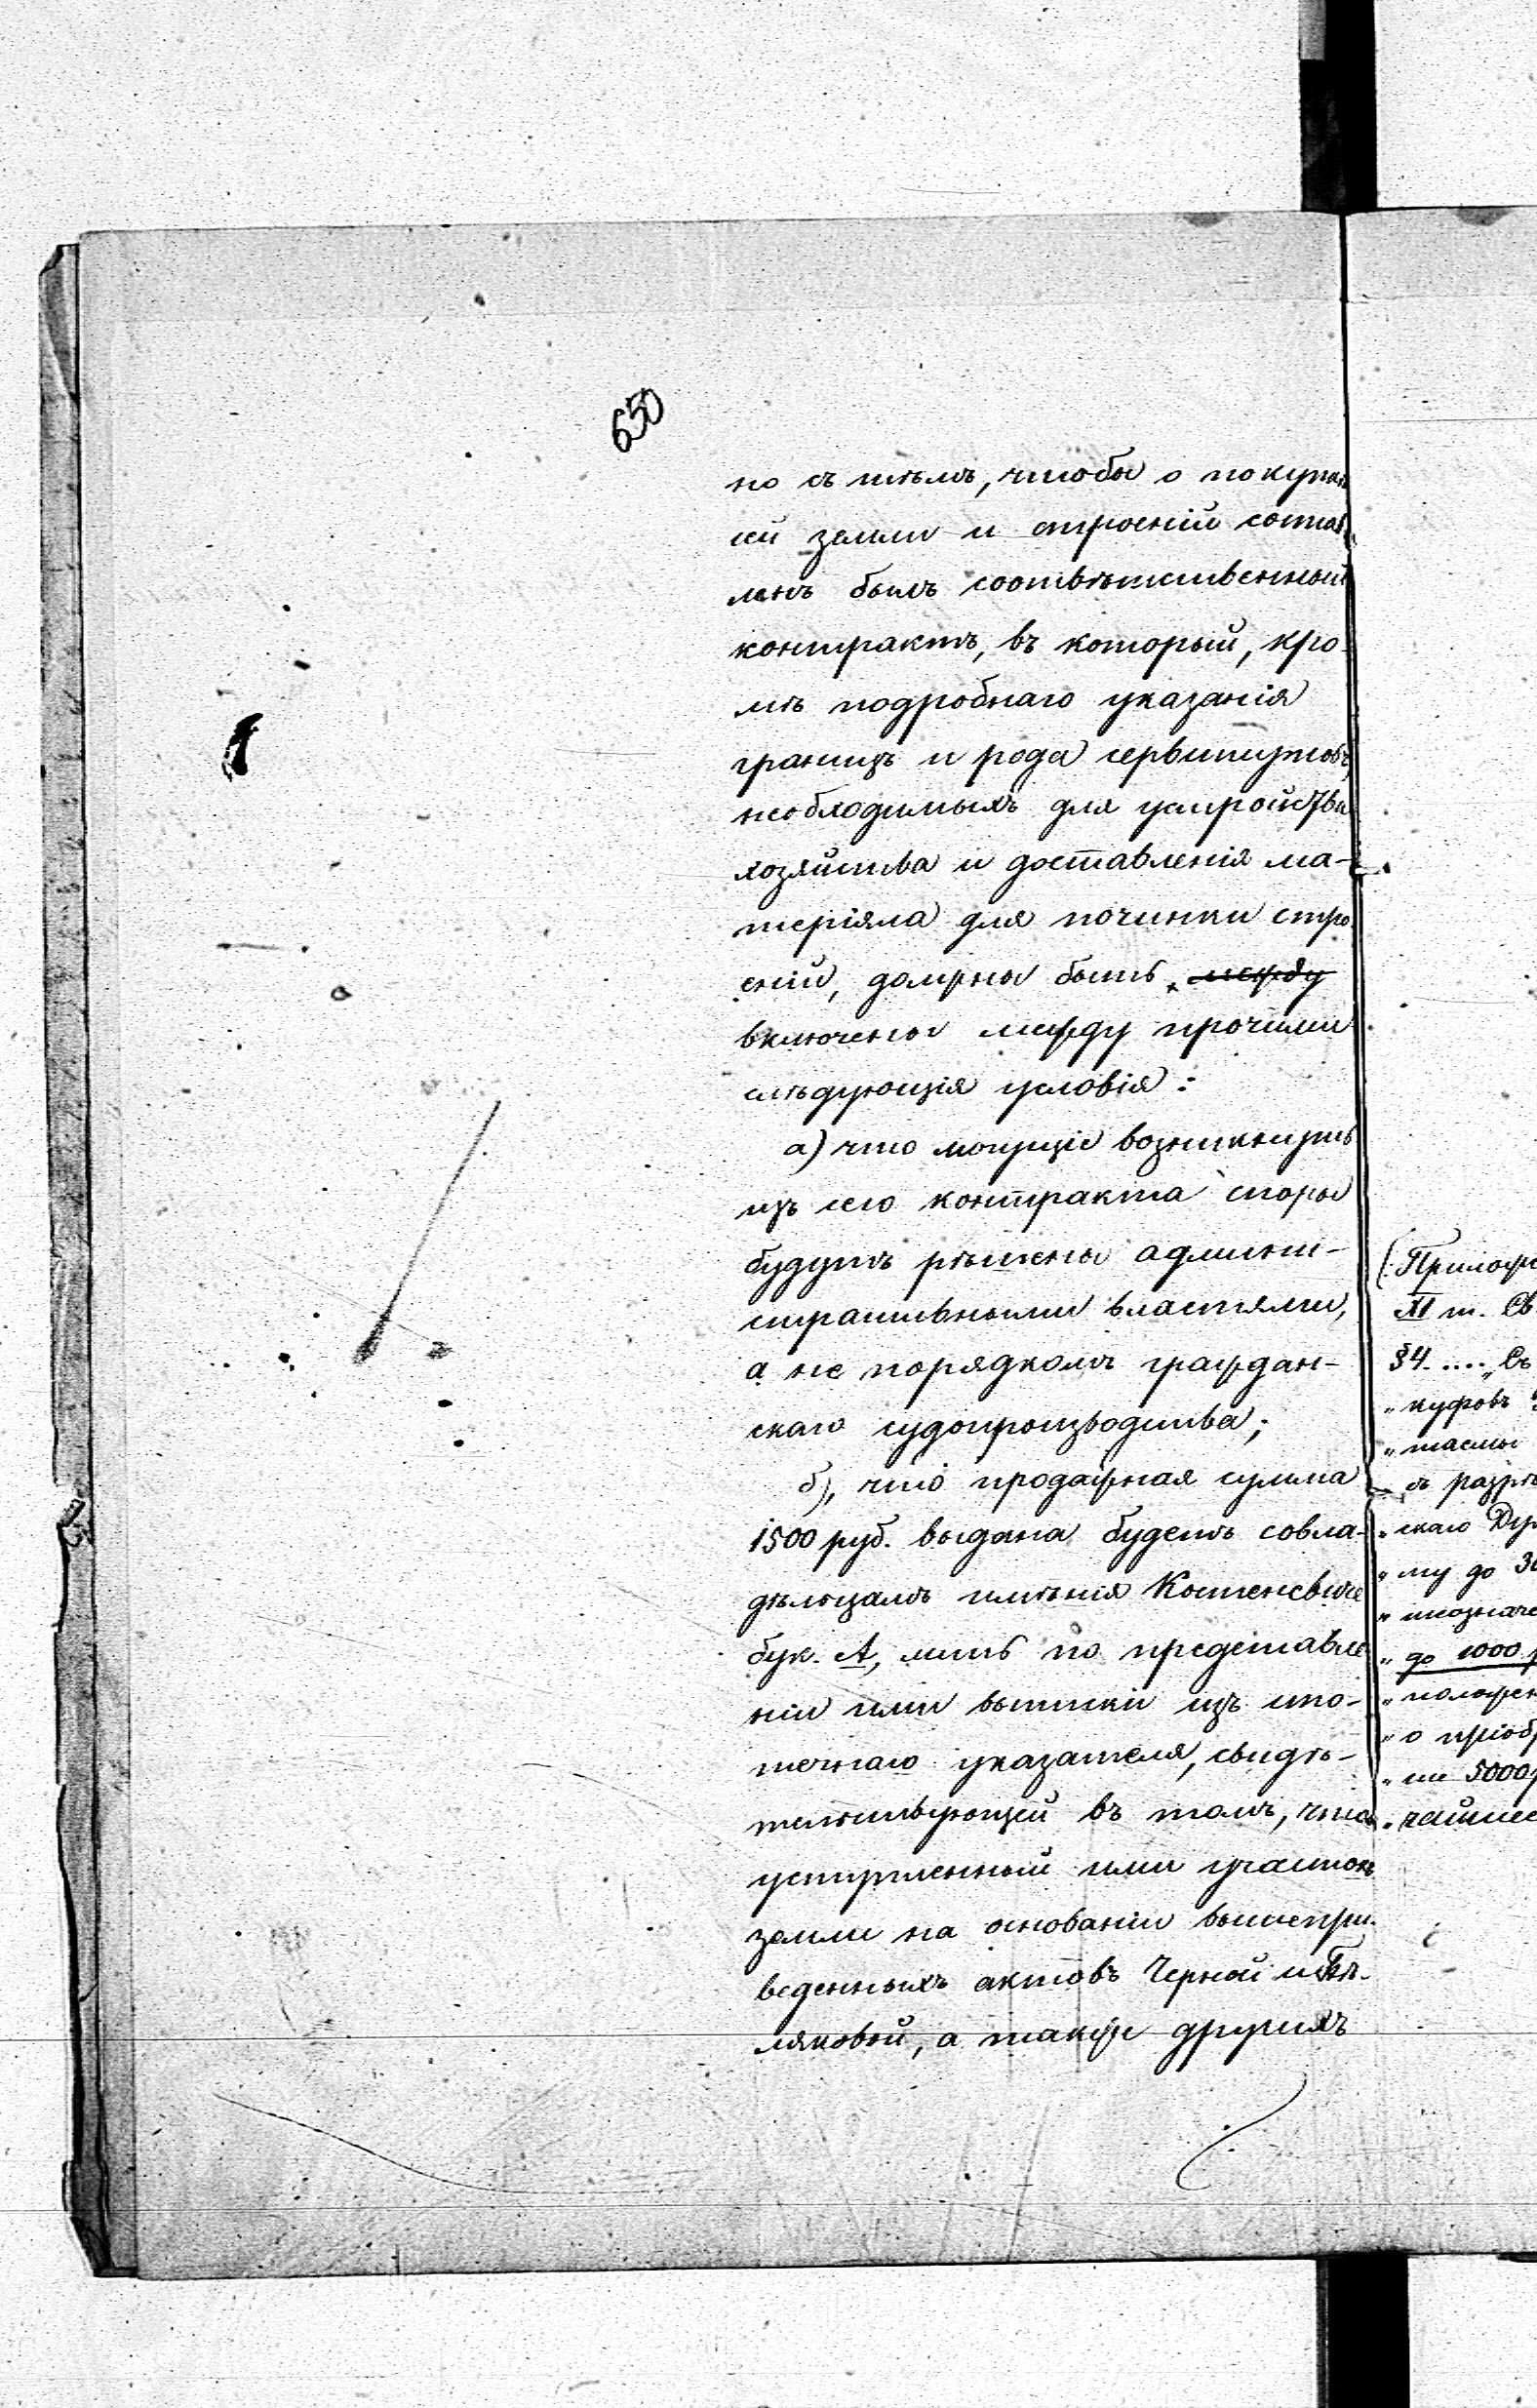 650
но съ тѣмъ, чтобы о покупкѣ
сей земли и строеній состав
ленъ былъ соотвѣтственный
контрактъ, въ который, кро-
мѣ подробнаго указанія
границъ и рода сервитутовъ,
необходимыхъ для устройства
хозяйства и доставленія ма-
теріяла для починки стро
еній, должны быть между
включены между прочими
слѣдующія условія:
а) что могущіе возникнуть
изъ сего контракта споры
будутъ рѣшены админи-
стративными властями,
а не порядкомъ граждан-
скаго судопроизводства;
б), что продажная сумма
1500 руб. выдана будетъ совла-
дѣльцамъ имѣнія Костеневиче
бук. А, лишь по представле
ніи ими выписки изъ ипо-
течнаго указателя, свидѣ-
тельствующей въ томъ, что
уступленный ими участокъ
земли на основаніи вышепри-
веденныхъ актовъ Черной и Бѣ-
ляковой, а также другихъ
(Прилож
XI т. Св
§4. .... „Съ
„ куфовъ
„
„ съ разрѣ
„ скаго Ду
„ му до 30
„ тысячъ
„ до 1000 р
„ положен
„ о пріоб
„ ше 5000 р
„ чайшее